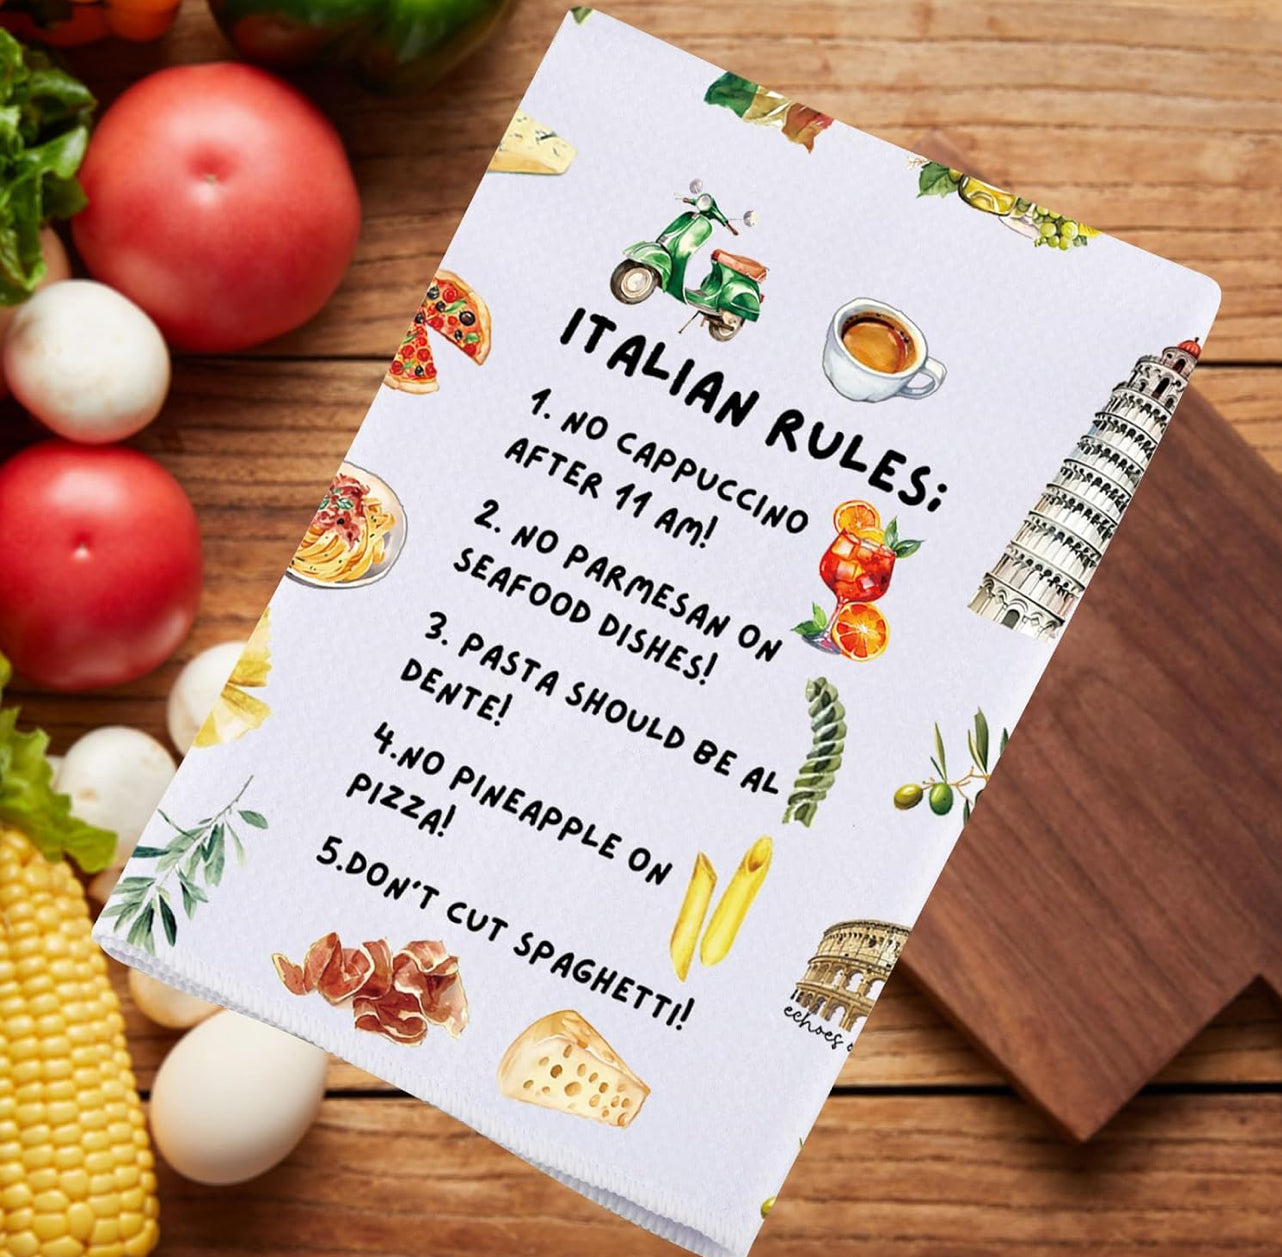 ITALIAN RULES;
1. NO CAPPUCCINO
AFTER 11 AM!
2. NO PARMESAN ON
SEAFOOD DISHES!
3. PASTA SHOULD BE AL
DENTE!
4.NO PINEAPPLE ON
PIZZA!
5.DON'T CUT SPAGHETTI!
echoes